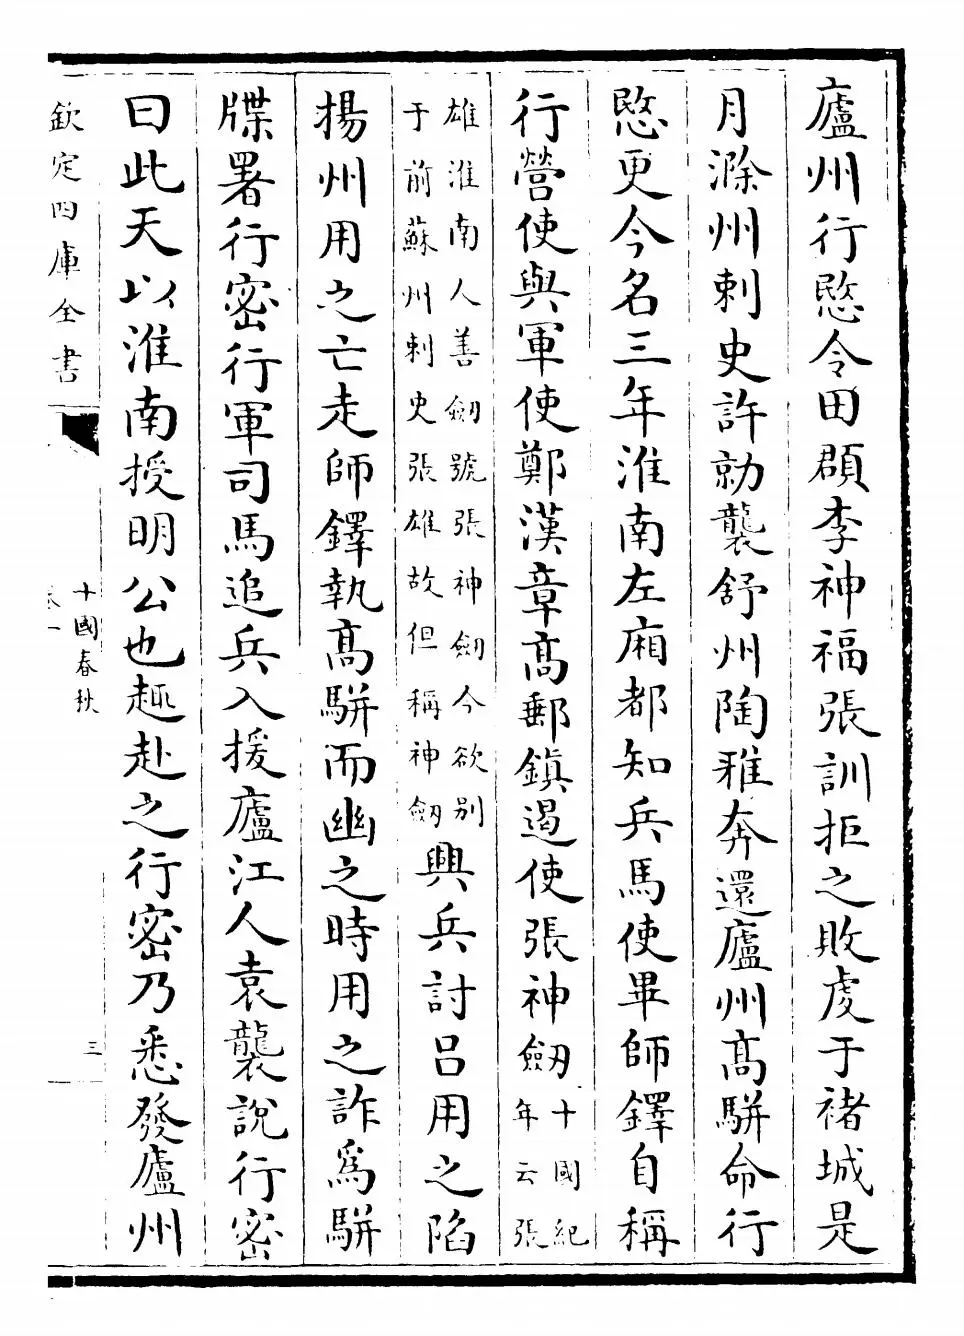 廬州行愍令田頵李神福張訓拒之敗虔于褚城是
月滁州刺史許勍襲舒州陶雅奔還廬州髙駢命行
愍更今名三年淮南左廂都知兵馬使畢師鐸自稱
行營使與軍使鄭漢章髙郵鎮遏使張神劒十國紀
年云張
雄淮南人善劒號張神劒今欲别
于前蘇州刺史張雄故但稱神劒
興兵討吕用之陷
揚州用之亡走師鐸執髙駢而幽之時用之詐爲駢
牒署行密行軍司馬追兵入援廬江人袁襲說行密
曰此天以淮南授明公也趣赴之行密乃悉發廬州
欽定四庫全書
十國春秋
卷一
三